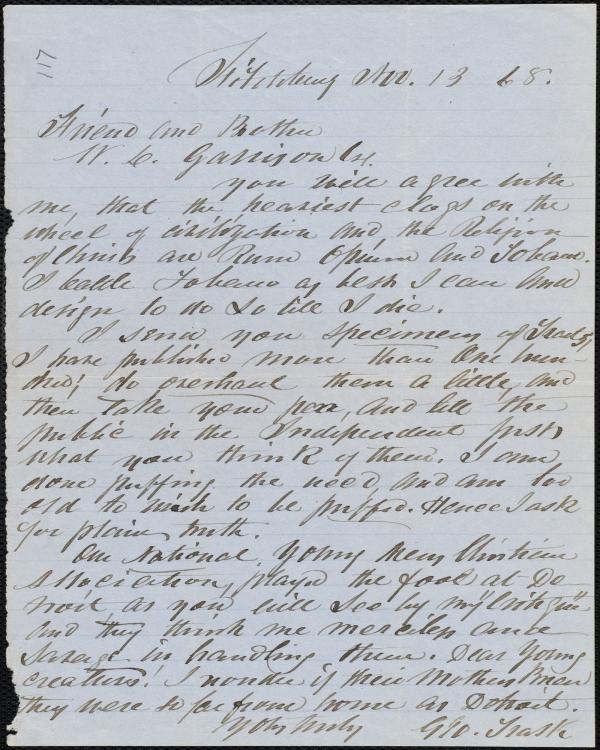 117
Fitchburg Nov. 13 68.
Friend and Brother
W. L. Garrison Esq.
you will agree with
me, that the heaviest clogs on the
wheel of civilization and the Religion
of Christ are Rum Opium and Tobacco.
I battle Tobacco as best I can and
design to do so till I die.
I send you specimens of Tracts,
I have published more than One hun-
dred; do overhaul them a little, and
then take your pen, and tell the
public in the Independent first,
what you think of them. I am
done puffing the weed and am too
old to wish to be puffed. Hence I ask
for plain truth.
Our National Young Mens Christian
Association, played the fool at De
troit, as you will see by my
and they think me merciless and
savage in handling them. Dear Young
creatures! I wonder if their Mothers knew
they were so far from home as Detroit.
Yours truly Geo. Trask